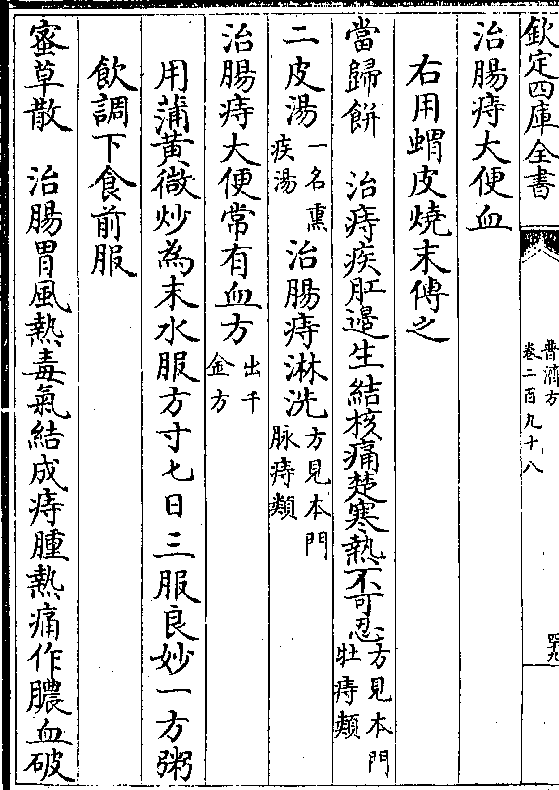 欽定四庫全書
普濟方
卷二百九十八
四九
治腸痔大便血
右用蝟皮燒末傅之
當歸餅　治痔疾肛邉生結核痛楚寒熱不可忍方見本門牡痔類
二皮湯一名熏疾湯治腸痔淋洗方見本門脉痔類
治腸痔大便常有血方出千金方
用蒲黄微炒為末水服方寸匕日三服良妙一方粥
飲調下食前服
蜜草散　治腸胃風熱毒氣結成痔腫熱痛作膿血破